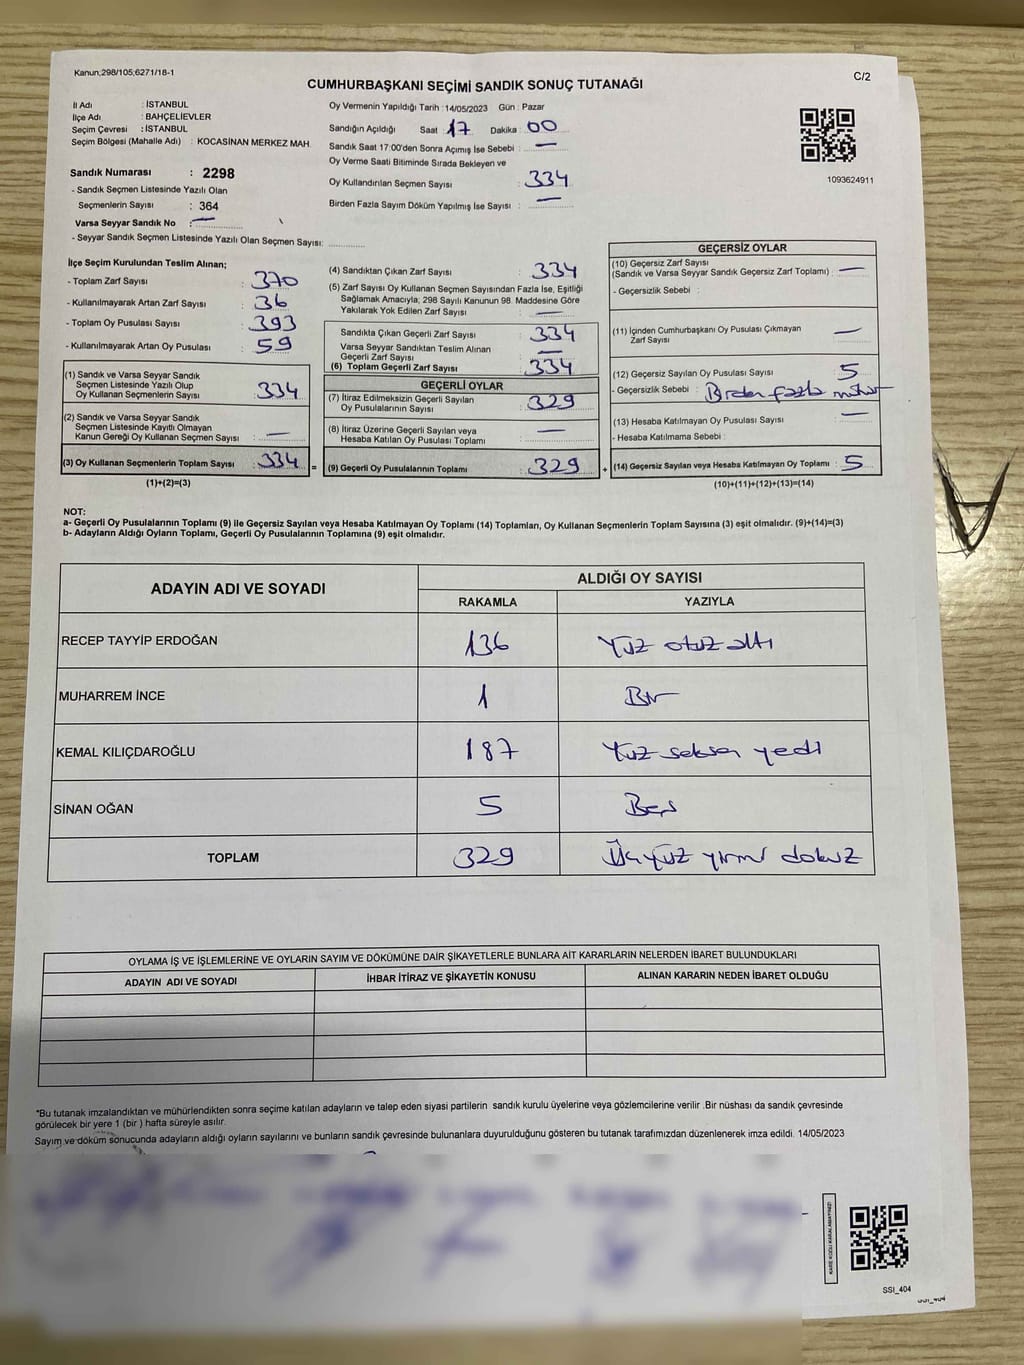 Kanun;298/105;6271/18-1
C/2
CUMHURBAŞKANI SEÇİMİ SANDIK SONUÇ TUTANAĞI
İl Adı : İSTANBUL
İlçe Adı : BAHÇELİEVLER
Seçim Çevresi : İSTANBUL
Seçim Bölgesi (Mahalle Adı) : KOCASİNAN MERKEZ MAH.
Sandık Numarası : 2298
- Sandık Seçmen Listesinde Yazılı Olan
Seçmenlerin Sayısı : 364
Varsa Seyyar Sandık No : —
- Seyyar Sandık Seçmen Listesinde Yazılı Olan Seçmen Sayısı: ..............
Oy Vermenin Yapıldığı Tarih : 14/05/2023 Gün : Pazar
Sandığın Açıldığı Saat : 17 Dakika : 00
Sandık Saat 17:00'den Sonra Açımış İse Sebebi : —
Oy Verme Saati Bitiminde Sırada Bekleyen ve
Oy Kullandırılan Seçmen Sayısı : 334
Birden Fazla Sayım Döküm Yapılmış İse Sayısı : —
1093624911
İlçe Seçim Kurulundan Teslim Alınan;
- Toplam Zarf Sayısı : 370
- Kullanılmayarak Artan Zarf Sayısı : 36
- Toplam Oy Pusulası Sayısı : 393
- Kullanılmayarak Artan Oy Pusulası : 59
(1) Sandık ve Varsa Seyyar Sandık
Seçmen Listesinde Yazılı Olup
Oy Kullanan Seçmenlerin Sayısı : 334
(2) Sandık ve Varsa Seyyar Sandık
Seçmen Listesinde Kayıtlı Olmayan
Kanun Gereği Oy Kullanan Seçmen Sayısı : —
(3) Oy Kullanan Seçmenlerin Toplam Sayısı : 334
(1)+(2)=(3)
=
(4) Sandıktan Çıkan Zarf Sayısı : 334
(5) Zarf Sayısı Oy Kullanan Seçmen Sayısından Fazla İse, Eşitliği
Sağlamak Amacıyla; 298 Sayılı Kanunun 98. Maddesine Göre
Yakılarak Yok Edilen Zarf Sayısı : —
Sandıkta Çıkan Geçerli Zarf Sayısı : 334
Varsa Seyyar Sandıktan Teslim Alınan
Geçerli Zarf Sayısı : —
(6) Toplam Geçerli Zarf Sayısı : 334
GEÇERLİ OYLAR
(7) İtiraz Edilmeksizin Geçerli Sayılan
Oy Pusulalarının Sayısı : 329
(8) İtiraz Üzerine Geçerli Sayılan veya
Hesaba Katılan Oy Pusulası Toplamı : —
(9) Geçerli Oy Pusulalarının Toplamı : 329
+
GEÇERSİZ OYLAR
(10) Geçersiz Zarf Sayısı
(Sandık ve Varsa Seyyar Sandık Geçersiz Zarf Toplamı) : —
- Geçersizlik Sebebi :
(11) İçinden Cumhurbaşkanı Oy Pusulası Çıkmayan
Zarf Sayısı : —
(12) Geçersiz Sayılan Oy Pusulası Sayısı : 5
- Geçersizlik Sebebi : Birden fazla mühür
(13) Hesaba Katılmayan Oy Pusulası Sayısı : —
- Hesaba Katılmama Sebebi :
(14) Geçersiz Sayılan veya Hesaba Katılmayan Oy Toplamı : 5
(10)+(11)+(12)+(13)=(14)
NOT:
a- Geçerli Oy Pusulalarının Toplamı (9) ile Geçersiz Sayılan veya Hesaba Katılmayan Oy Toplamı (14) Toplamları, Oy Kullanan Seçmenlerin Toplam Sayısına (3) eşit olmalıdır. (9)+(14)=(3)
b- Adayların Aldığı Oyların Toplamı, Geçerli Oy Pusulalarının Toplamına (9) eşit olmalıdır.
ADAYIN ADI VE SOYADI ALDIĞI OY SAYISI
RAKAMLA YAZIYLA
RECEP TAYYİP ERDOĞAN 136 Yüz otuz altı
MUHARREM İNCE 1 Bir
KEMAL KILIÇDAROĞLU 187 Yüz seksen yedi
SİNAN OĞAN 5 Beş
TOPLAM 329 Üçyüz yirmi dokuz
OYLAMA İŞ VE İŞLEMLERİNE VE OYLARIN SAYIM VE DÖKÜMÜNE DAİR ŞİKAYETLERLE BUNLARA AİT KARARLARIN NELERDEN İBARET BULUNDUKLARI
ADAYIN ADI VE SOYADI İHBAR İTİRAZ VE ŞİKAYETİN KONUSU ALINAN KARARIN NEDEN İBARET OLDUĞU
"Bu tutanak imzalandıktan ve mühürlendikten sonra seçime katılan adayların ve talep eden siyasi partilerin sandık kurulu üyelerine veya gözlemcilerine verilir .Bir nüshası da sandık çevresinde
görülecek bir yere 1 (bir ) hafta süreyle asılır.
Sayım ve döküm sonucunda adayların aldığı oyların sayılarını ve bunların sandık çevresinde bulunanlara duyurulduğunu gösteren bu tutanak tarafımızdan düzenlenerek imza edildi. 14/05/2023
KARE KODU KARALAMAYINIZ!
SSI_404
SSI_404